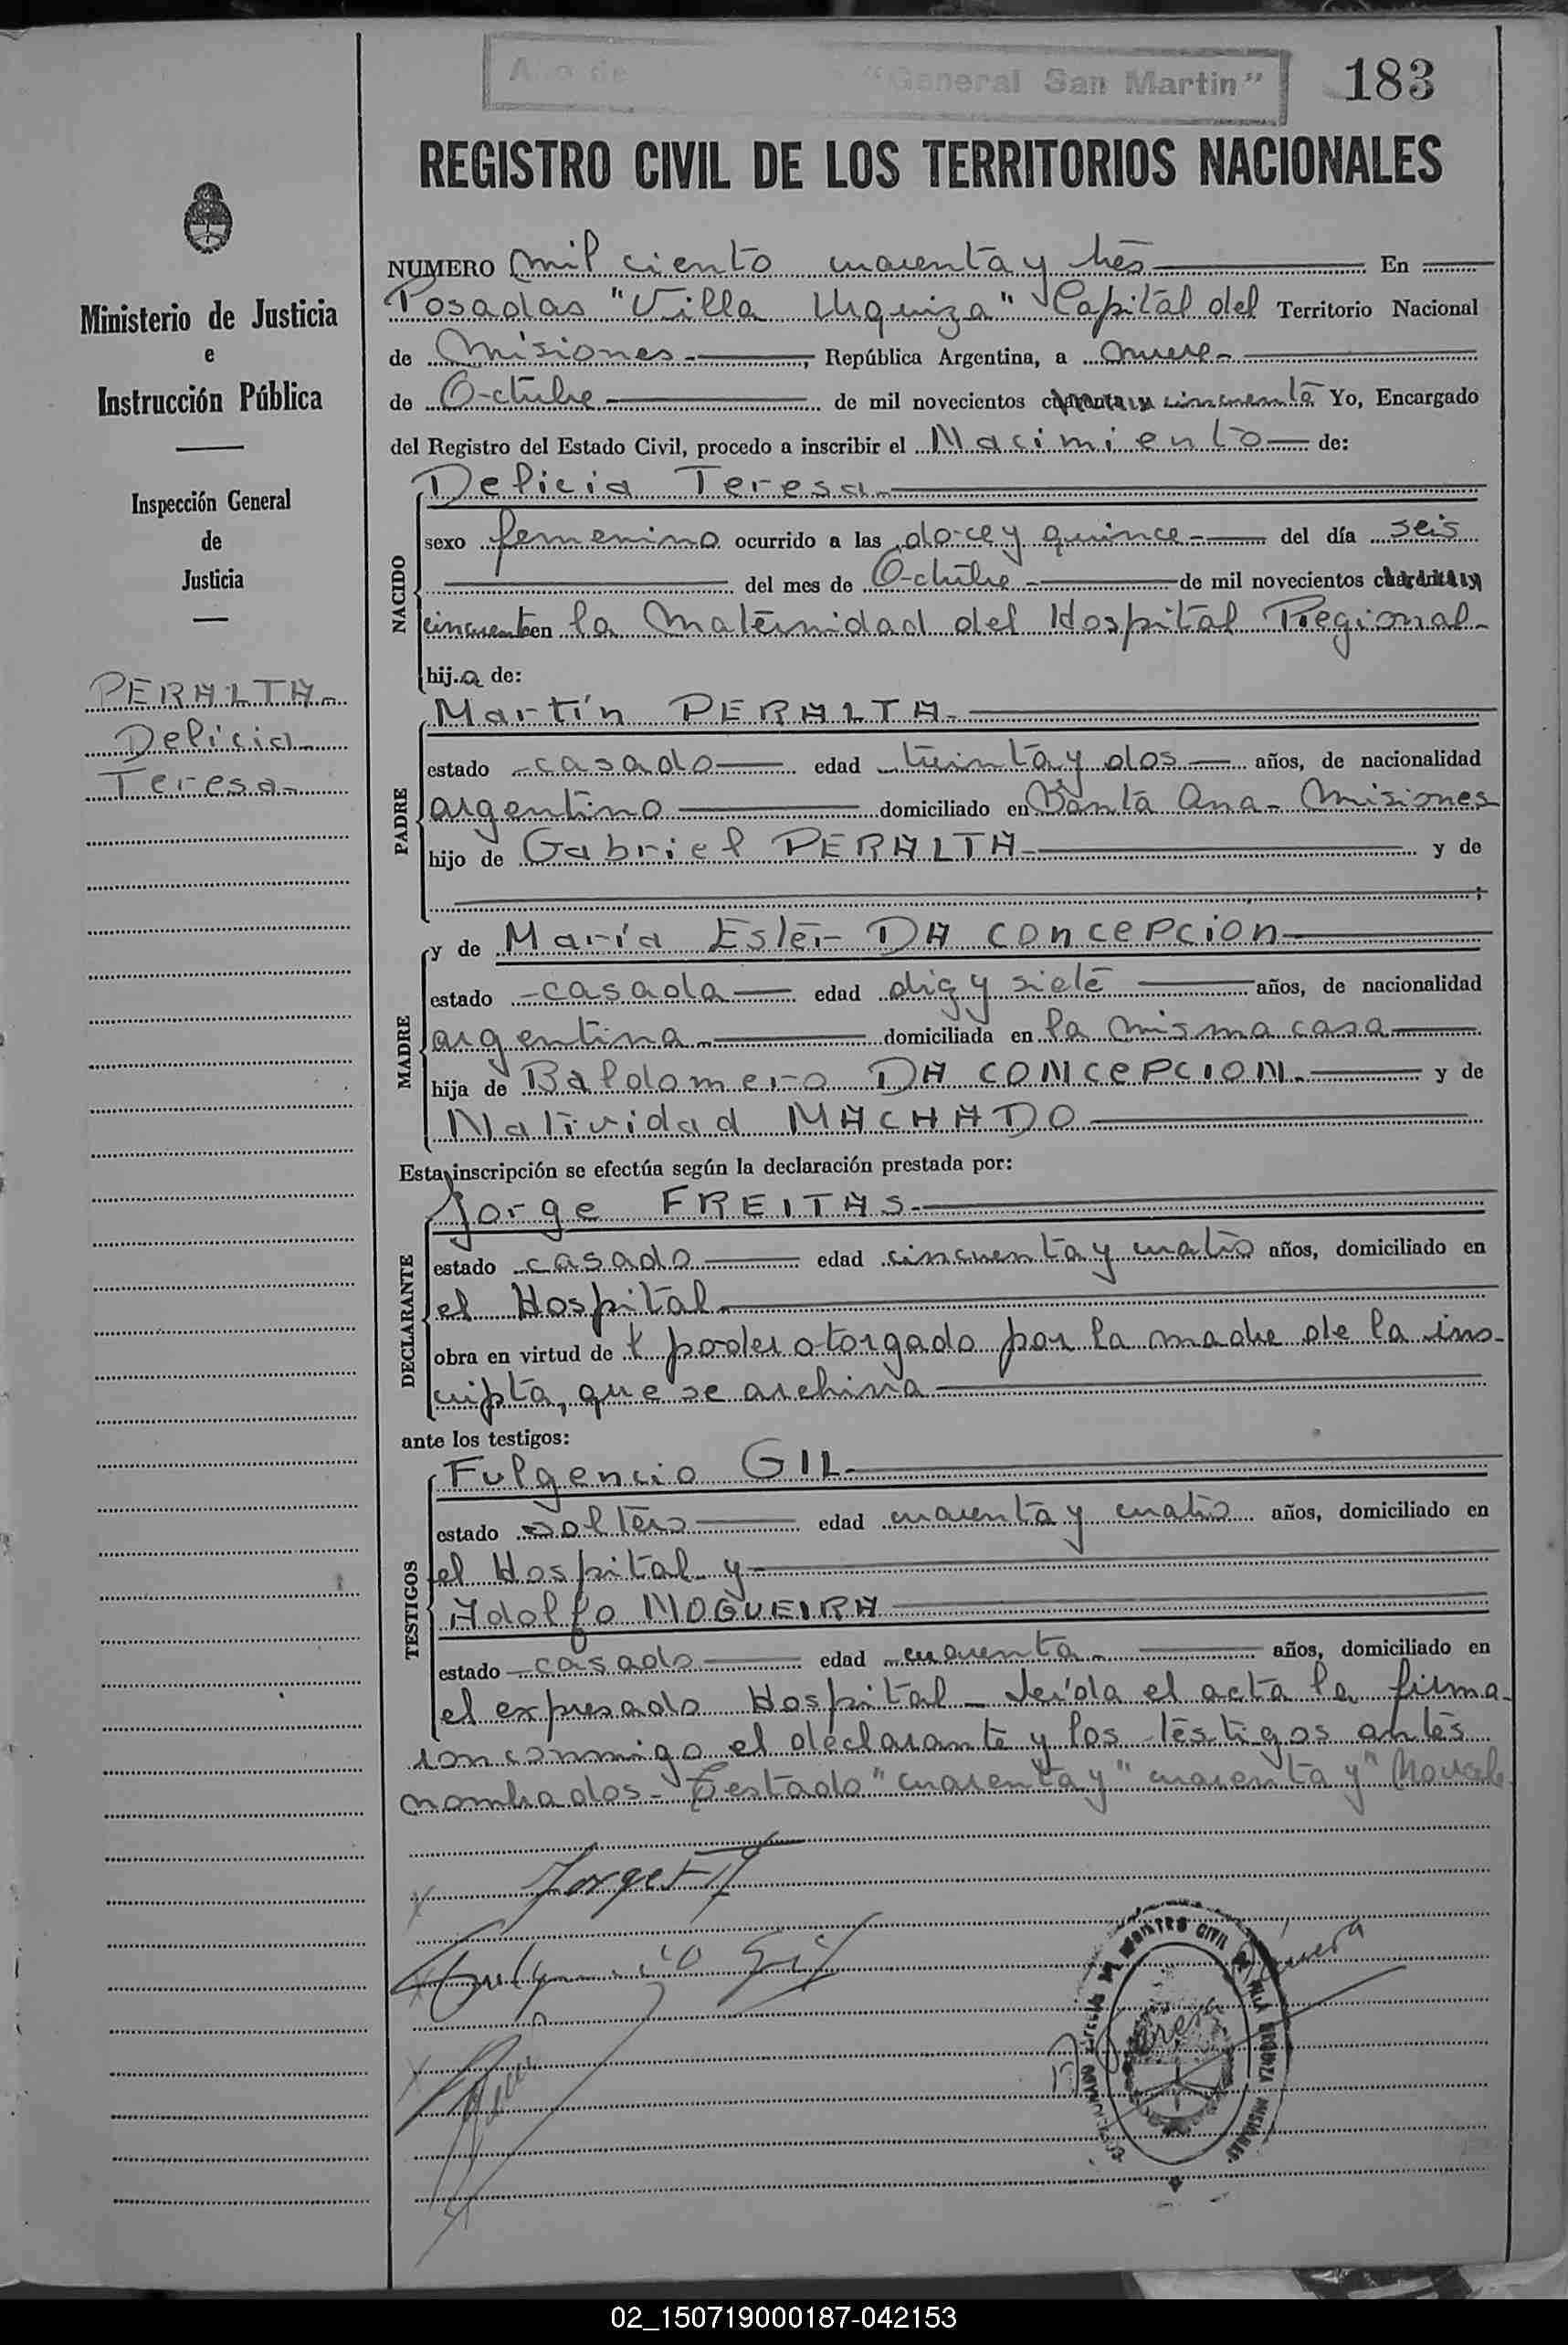 "General San Martin"
183
REGISTRO CIVIL DE LOS TERRITORIOS NACIONALES
Ministerio de Justicia
e
Instrucción Pública
Inspección General
de
Justicia
PERALTA
Delicia
Teresa
NUMERO mil ciento cuarenta y tres En
Posadas "Villa Urquiza" Capital del Territorio Nacional
de Misiones, República Argentina, a nueve
de Octubre de mil novecientos cincuenta Yo, Encargado
del Registro del Estado Civil, procedo a inscribir el Nacimiento de:
NACIDO
Delicia Teresa
sexo femenino ocurrido a las doce y quince del día seis
del mes de Octubre de mil novecientos cuarenta y
cincuenta en la Maternidad del Hospital Regional
hija de:
PADRE
Martín PERALTA
estado casado edad treinta y dos años, de nacionalidad
argentino domiciliado en Santa Ana - Misiones
hijo de Gabriel PERALTA y de
MADRE
y de María Ester DA CONCEPCION
estado casada edad diez y siete años, de nacionalidad
argentina domiciliada en la misma casa
hija de Baldomero DA CONCEPCION y de
Natividad MACHADO
Esta inscripción se efectúa según la declaración prestada por:
DECLARANTE
Jorge FREITAS
estado casado edad cincuenta y cuatro años, domiciliado en
el Hospital
obra en virtud de poder otorgado por la madre de la ins-
cripta, que se archiva
ante los testigos:
TESTIGOS
Fulgencio GIL
estado soltero edad cuarenta y cuatro años, domiciliado en
el Hospital y
Adolfo NOGUEIRA
estado casado edad cuarenta años, domiciliado en
el expresado Hospital - Leída el acta la firma-
ron conmigo el declarante y los testigos antes
nombrados - Testado "cuarenta y" "cuarenta y" No vale
Fulgencio Gil
02_150719000187-042153